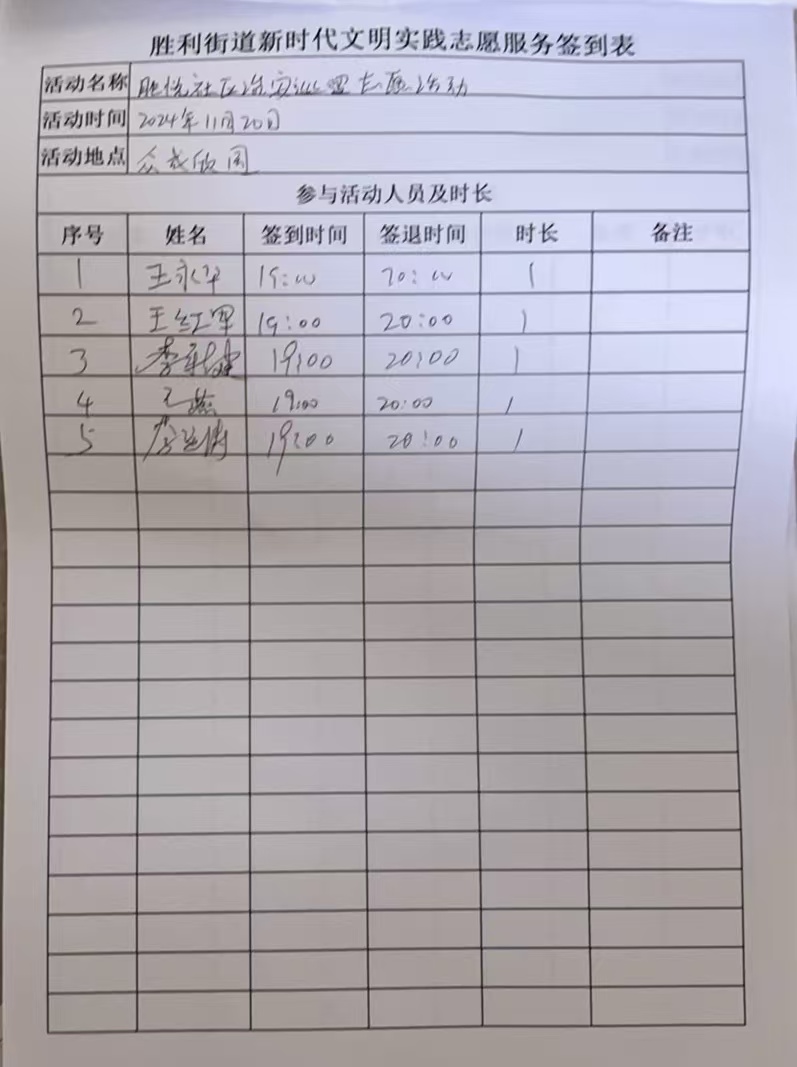 胜利街道新时代文明实践志愿服务签到表
活动名称 社区治安 志愿活动
活动时间 2024年11月20日
活动地点 众成欣园
参与活动人员及时长
序号 姓名 签到时间 签退时间 时长 备注
1 王永华 19:00 20:00 1
2 王红军 19:00 20:00 1
3 李 19:00 20:00 1
4 王燕 19:00 20:00 1
5 19:00 20:00 1